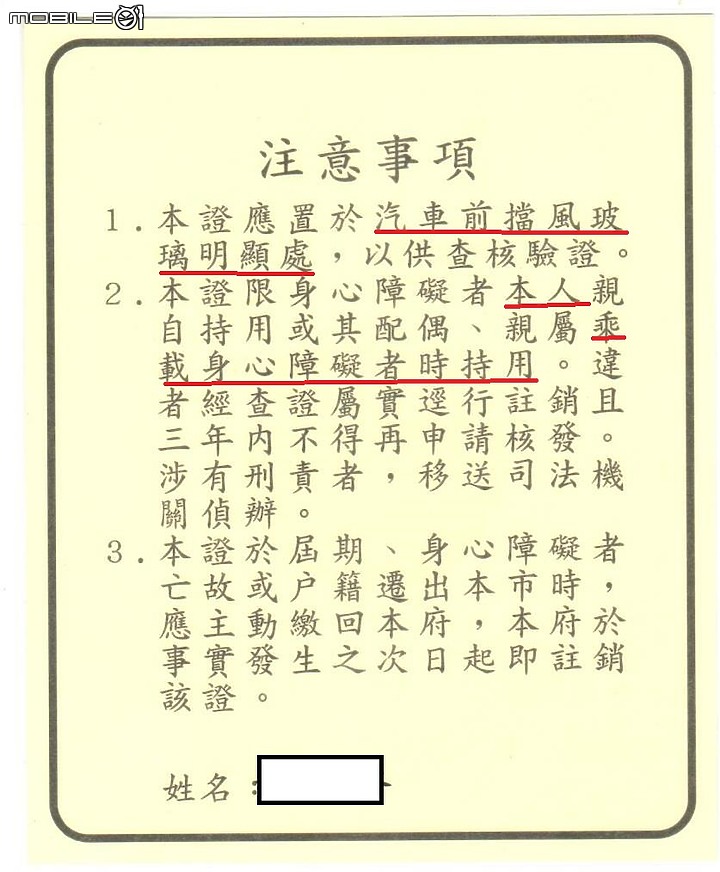 MOBILE01
注意事項
1.本證應置於汽車前擋風玻
璃明顯處，以供查核驗證。
2.本證限身心障礙者本人親
自持用或其配偶、親屬乘
載身心障礙者時持用。違
者經查證屬實逕行註銷且
三年內不得再申請核發。
涉有刑責者，移送司法機
關偵辦。
3.本證於屆期、身心障礙者
亡故或户籍遷出本市時，
應主動繳回本府，本府於
事實發生之次日起即註銷
該證。
姓名：